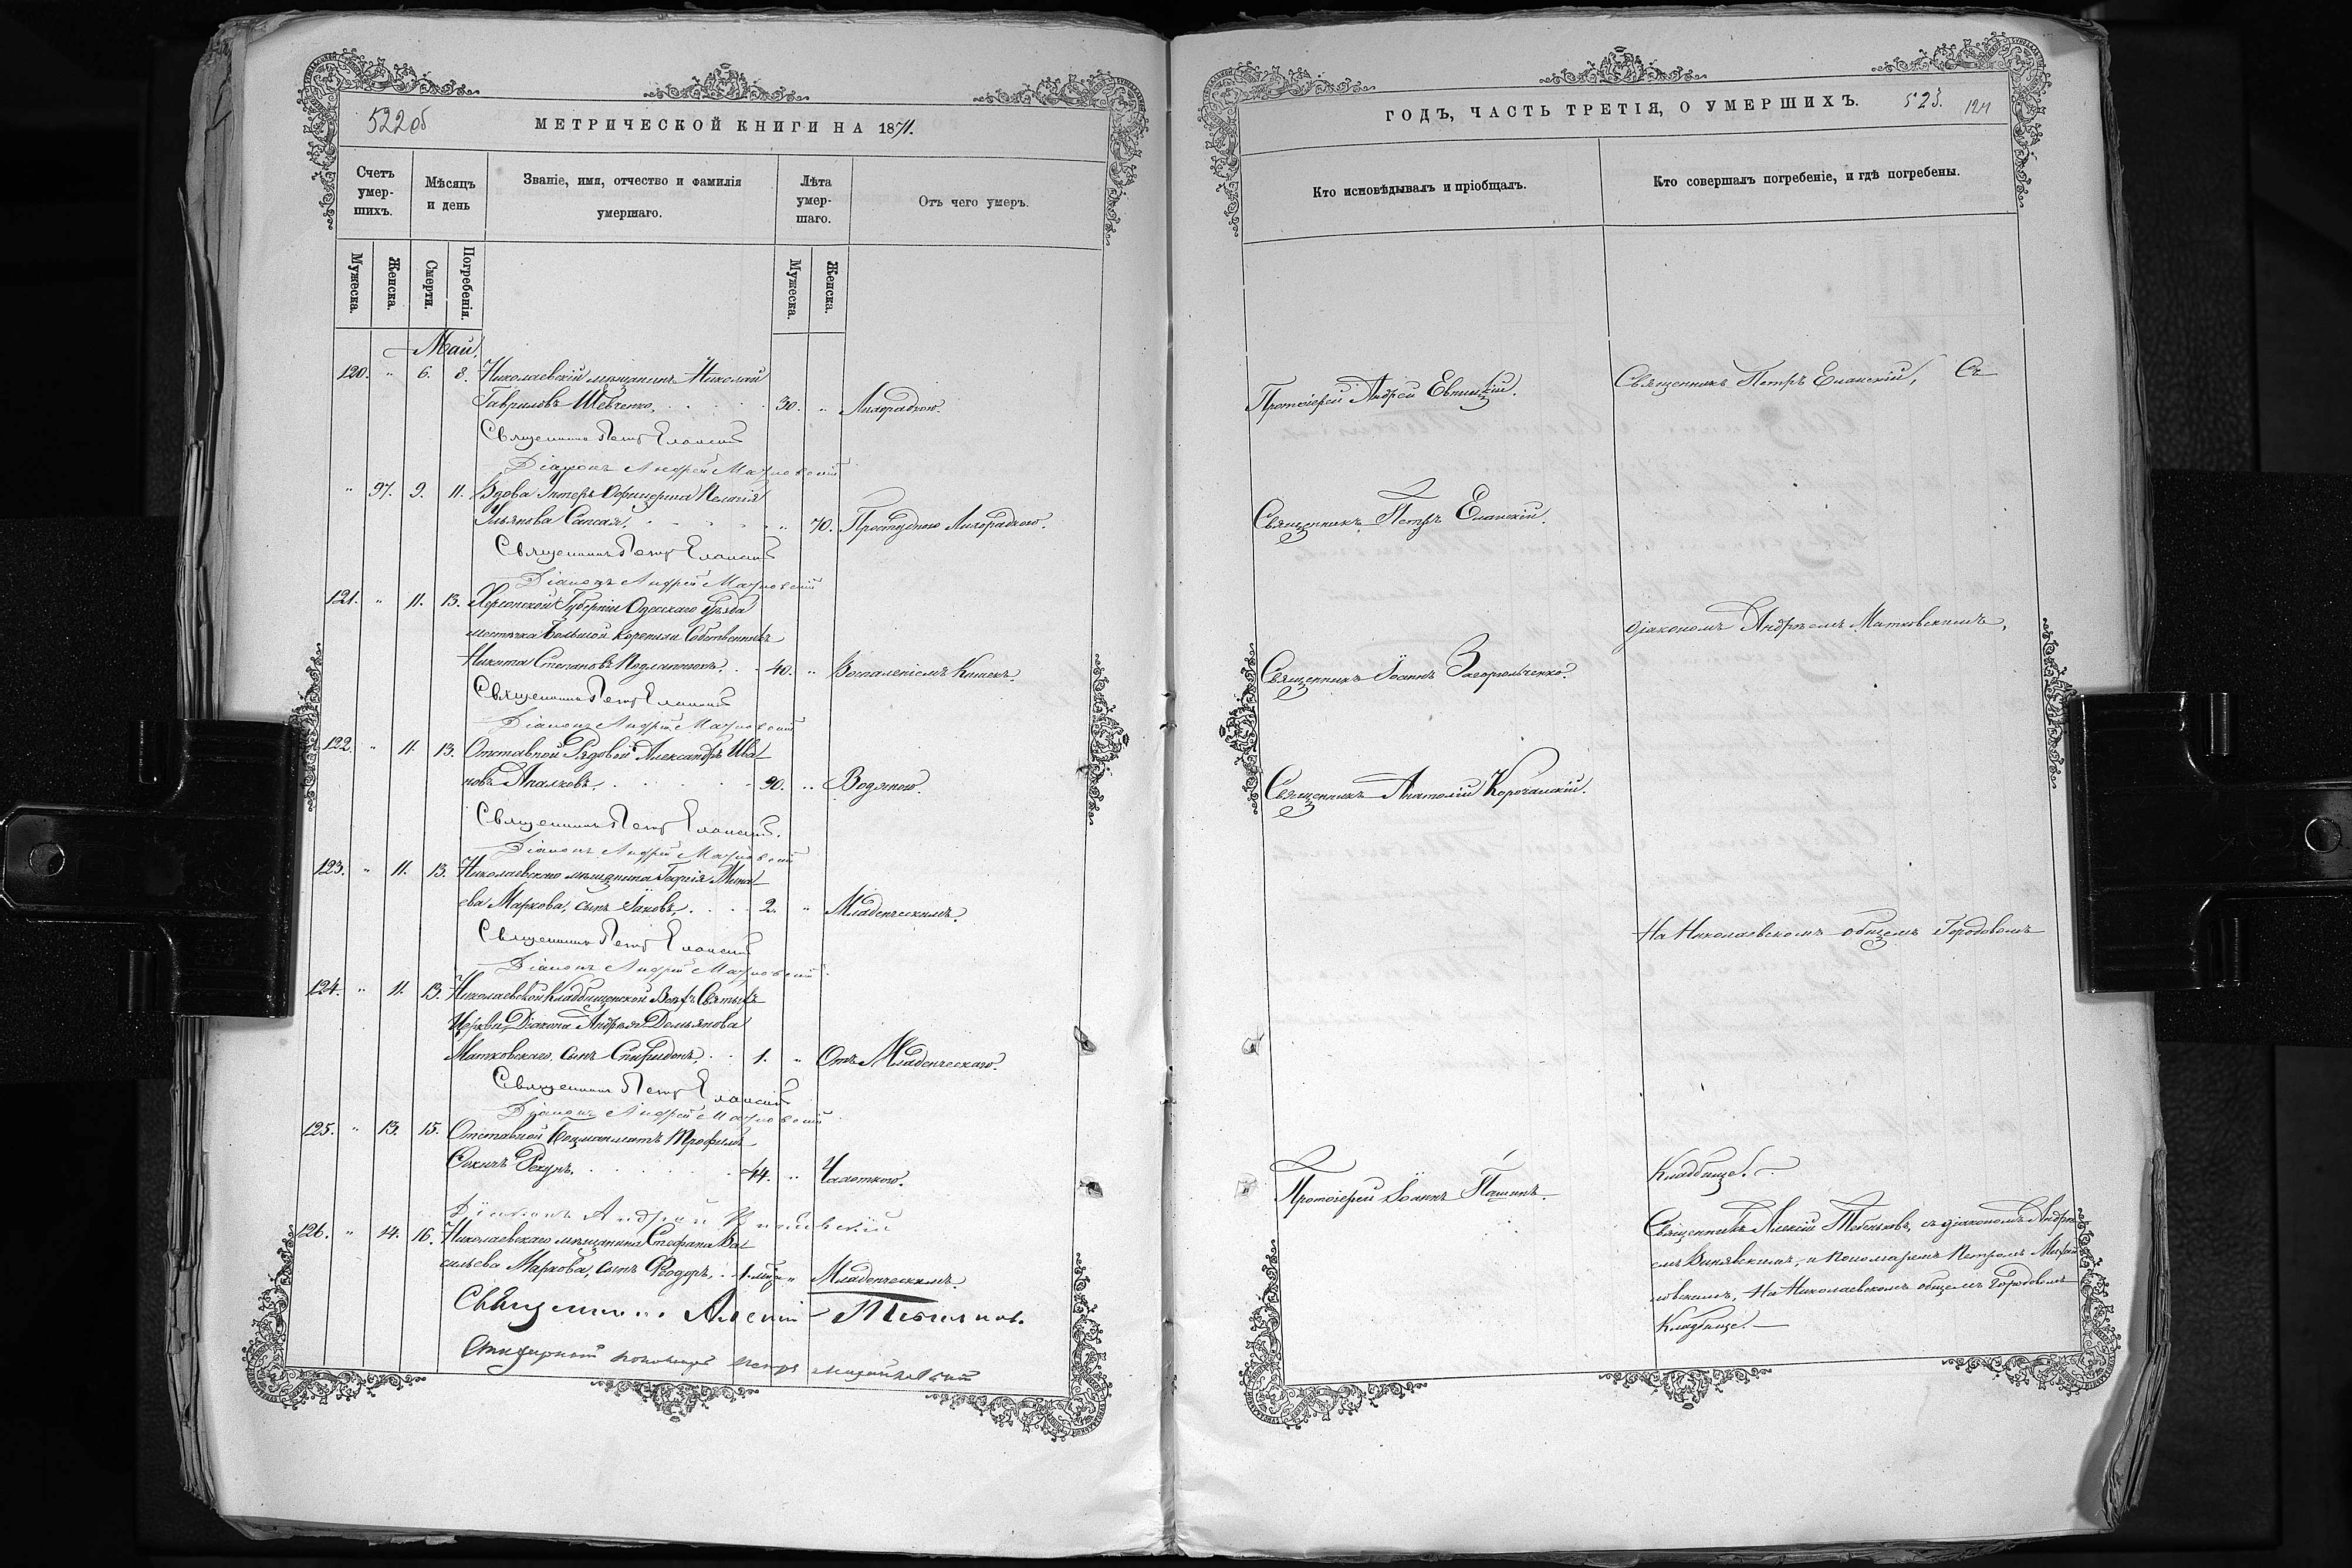 522об
МЕТРИЧЕСКОЙ КНИГИ НА 1871.
Счетъ умер-шихъ.
Мѣсяцъ и день
Званіе, имя, отчество и фамилія умершаго.
Лѣта умер-шаго.
Отъ чего умеръ.
Мужеска.
Женска.
Смерти.
Погребенія.
Мужеска.
Женска.
Май.
120. " 6. 8. Николаевскій мѣщанинъ Николай
Гавриловъ Шевченко, 30. " Лихорадкою.
Священникъ Петръ Еланскій
Діаконъ Андрей Матковскій
" 97. 9. 11. Вдова Унтеръ Офицерша Пелагія
Ульянова Сапсая, " 70. Простудною Лихорадкою.
Священникъ Петръ Еланскій
Діаконъ Андрей Матковскій
121. " 11. 13. Херсонской Губерніи Одесскаго Уѣзда
мѣстечка Большой Коренихи Собственникъ
Никита Степановъ 40. " Воспаленіемъ Кишекъ.
Священникъ Петръ Еланскій
Діаконъ Андрей Матковскій
122. " 11. 13. Отставной Рядовой Александръ Ива
новъ Апалковъ, 90. " Водяною.
Священникъ Петръ Еланскій.
Діаконъ Андрей Матковскій
123. " 11. 13. Николаевскаго мѣщанина Георгія Мина
ева Маркова, сынъ Іаковъ, 2. " Младенческимъ.
Священникъ Петръ Еланскій
Діаконъ Андрей Матковскій
124. " 11. 13. Николаевской Кладбищенской Всѣхъ Святыхъ
Церкви, Діакона Андрея Демьянова
Матковскаго, сынъ Спиридонъ, 1. " Отъ Младенческаго.
Священникъ Петръ Еланскій
Діаконъ Андрей Матковскій
125. " 13. 15. Отставной Боцманматъ Трофимъ
44. " Чахоткою.
Діаконъ Андрей
126. " 14. 16. Николаевскаго мѣщанина Стефана Ва
сильева Маркова, сынъ Ѳеодоръ, 1. мѣс. " Младенческимъ
Священникъ Алексій
пономарь Петръ
ГОДЪ, ЧАСТЬ ТРЕТІЯ, О УМЕРШИХЪ.
523.
Кто исповѣдывалъ и пріобщалъ.
Кто совершалъ погребеніе, и гдѣ погребены.
Протоіерей Андрей Евницкій.
Священникъ Петръ Еланскій, Съ
Священникъ Петръ Еланскій.
діакономъ Андреемъ Матковскимъ,
Священникъ Іоаннъ
Священникъ Анатолій Корочанскій.
На Николаевскомъ общемъ Городовомъ
Кладбище.
Протоіерей Іоаннъ Пашинъ.
Священникъ Алексій съ діакономъ Андре
емъ и Пономаремъ Петромъ Михай
ловскимъ, На Николаевскомъ общемъ Городовомъ
Кладбище.